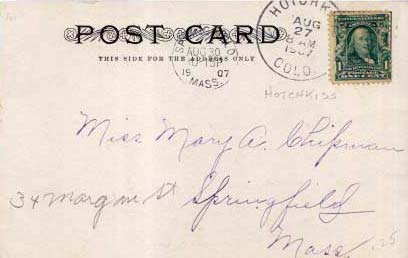 POST CARD
THIS SIDE FOR THE ADDRESS ONLY
AUG 30
19 07
MASS.
HOTCHK
AUG
27
8 AM
1907
COLO.
1
HOTCHKISS
Miss Mary A. Chipman
34 Morgan St Springfield
Mass.
1.25